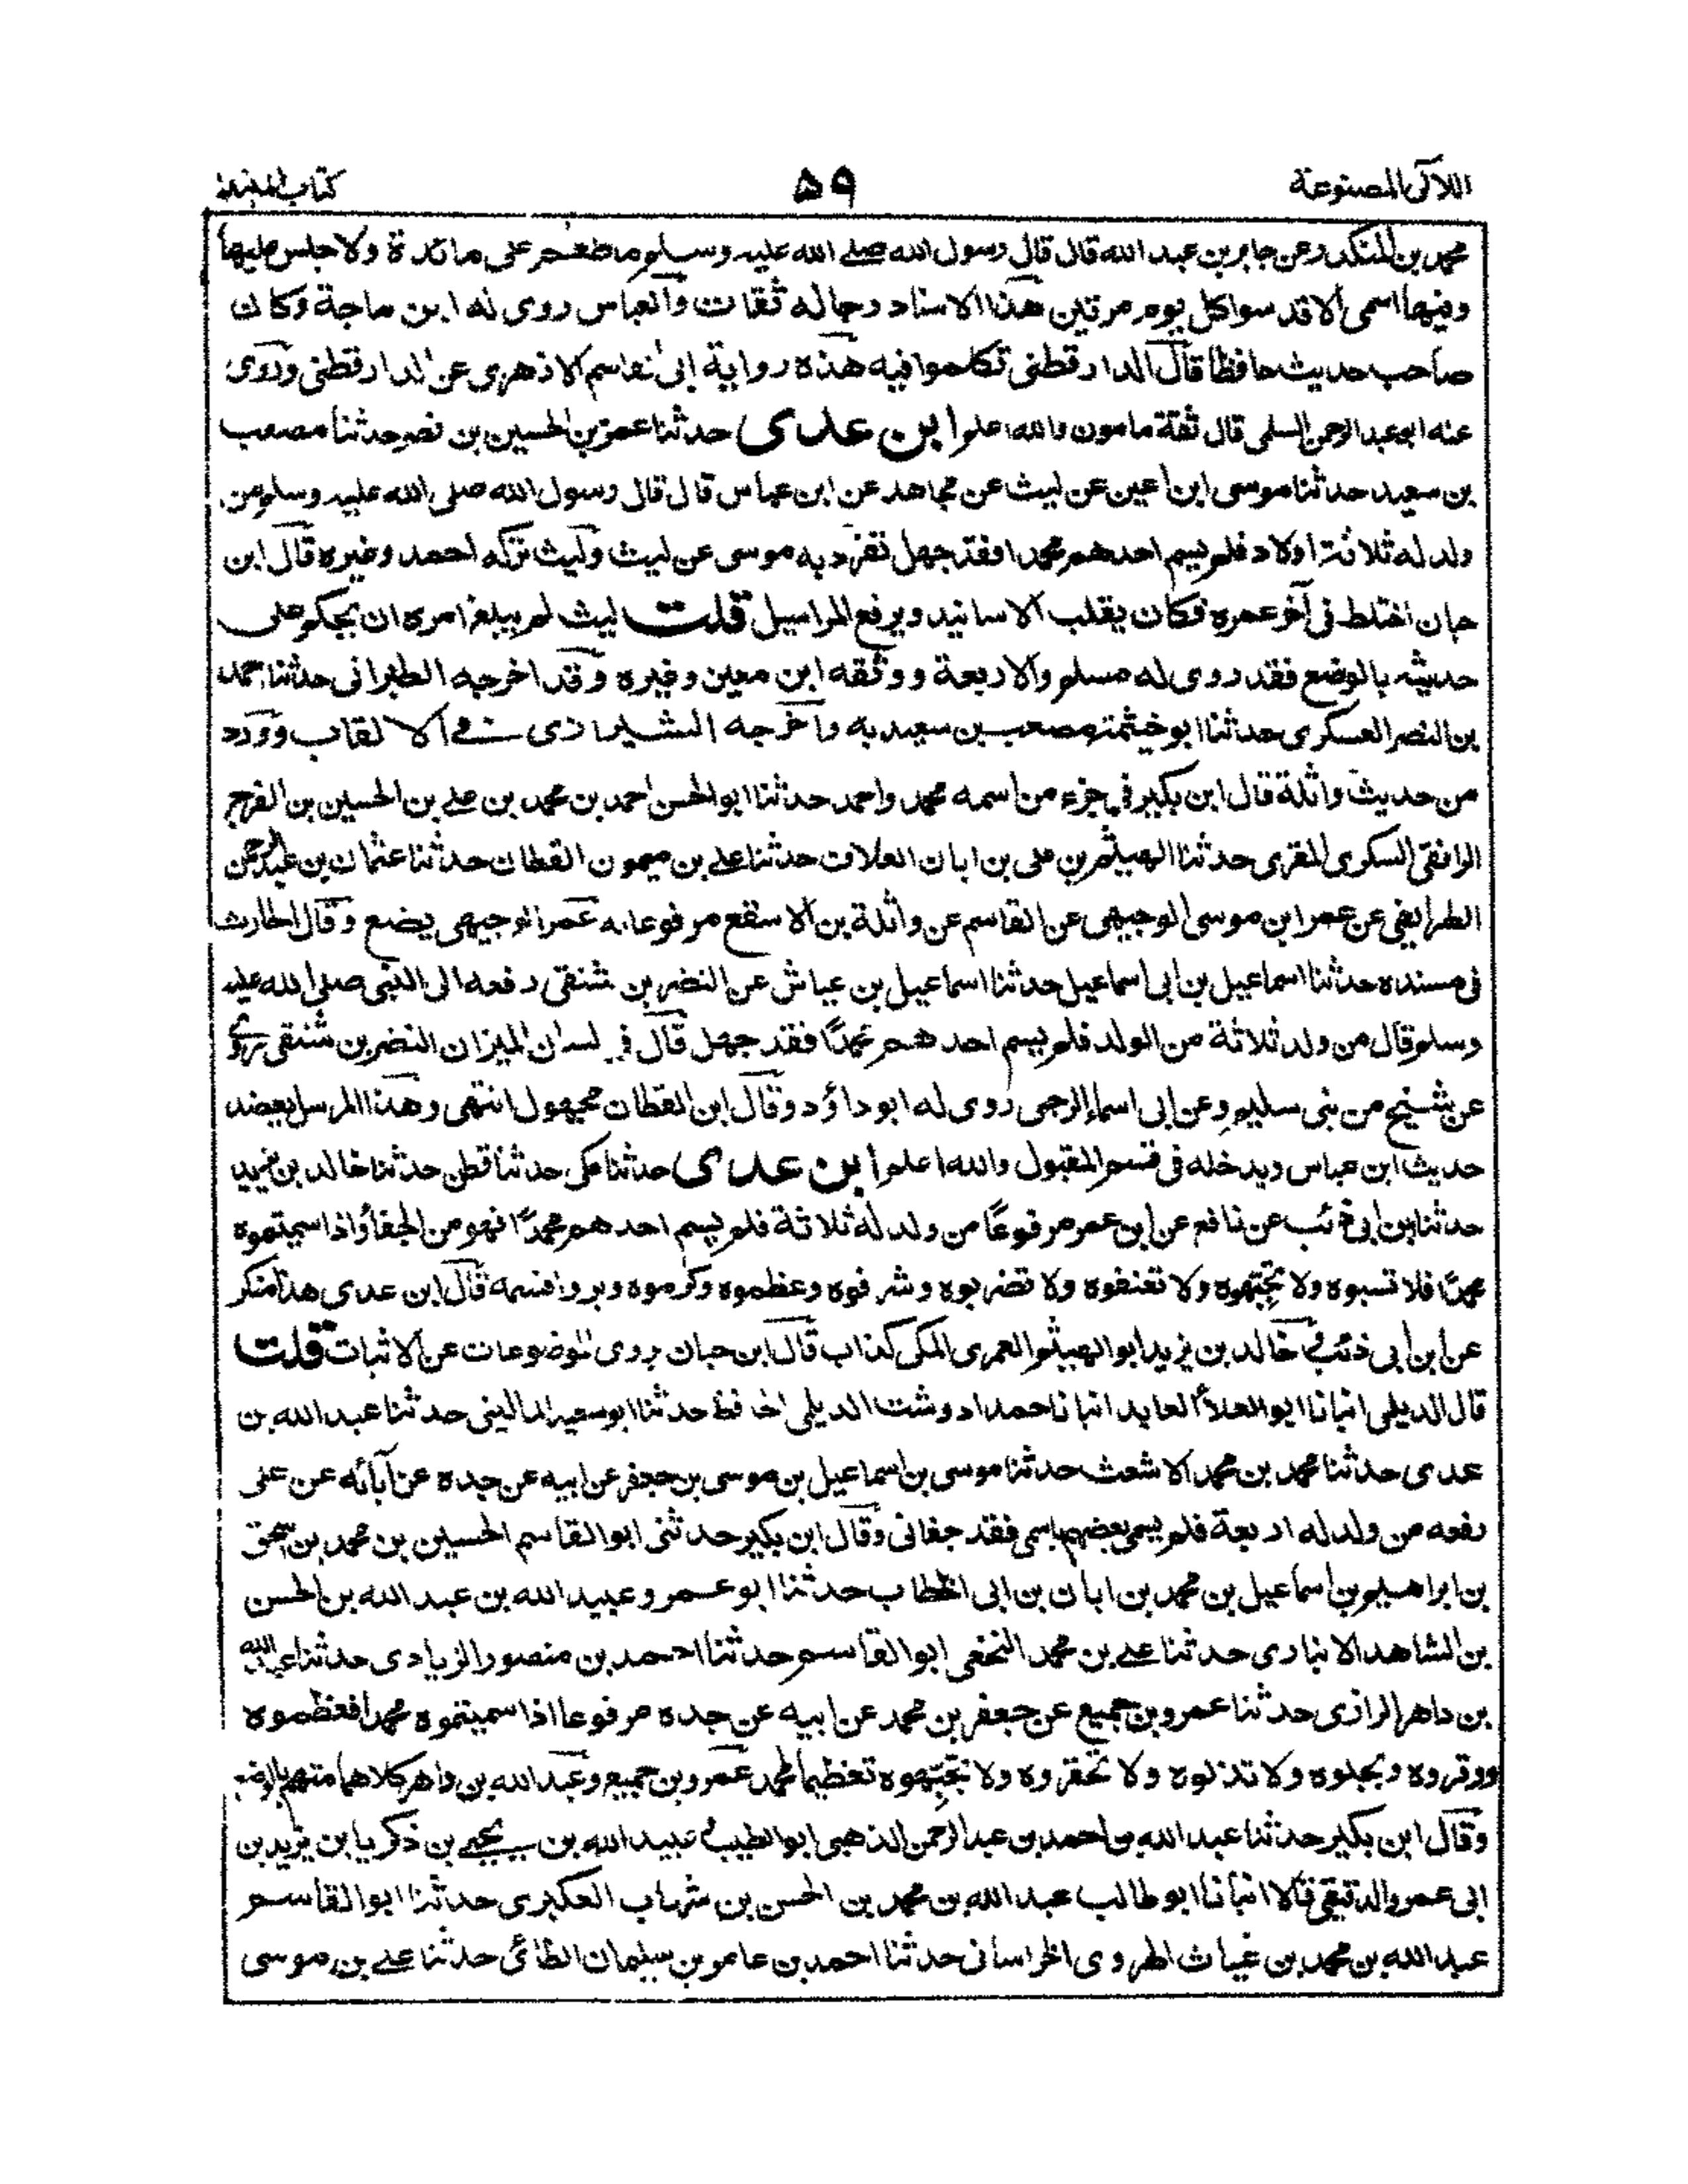 اللآلى المصنوعة ۵۹ كتاب المبتدا
محمد بن المنكدر عن جابر بن عبد الله قال قال رسول الله صلى الله عليه وسلم ما طعم على مائدة ولا جلس عليها
وفيها اسمى الا قدسوا كل يوم مرتين هذا الاسناد رجاله ثقات والعباس روى له ابن ماجة وكان
صاحب حديث حافظا قال الدارقطنى تكلموا فيه هذه رواية ابى القاسم الازهرى عن الدارقطنى وروى
عنه ابو عبد الرحمن السلمى قال ثقة مامون والله اعلم ابن عدى حدثنا عمر بن الحسين بن نصر حدثنا مصعب
بن سعيد حدثنا موسى ابن اعين عن ليث عن مجاهد عن ابن عباس قال قال رسول الله صلى الله عليه وسلم من
ولد له ثلاثة اولاد فلم يسم احدهم محمدا فقد جهل تفرد به موسى عن ليث وليث تركه احمد وغيره قال ابن
حبان اختلط فى آخر عمره فكان يقلب الاسانيد ويرفع المراسيل قلت ليث لم يبلغ امره ان يحكم على
حديثه بالوضع فقد روى له مسلم والاربعة ووثقه ابن معين وغيره وقد اخرجه الطبرانى حدثنا احمد
بن النضر العسكرى حدثنا ابو خيثمة مصعب بن سعيد به واخرجه الشيرازى فى الالقاب وورد
من حديث واثلة قال ابن بكير فى جزء من اسمه محمد واحمد حدثنا ابو الحسن احمد بن محمد بن على بن الحسين بن الفرج
الرافقى السكرى المقرى حدثنا الهيثم بن على بن ابان العلاف حدثنا على بن ميمون القطان حدثنا عثمان بن عبد الرحمن
الطرايفى عن عمر ابن موسى الوجيهى عن القاسم عن واثلة بن الاسقع مرفوعا به عمر الوجيهى يضع وقال الحارث
فى مسنده حدثنا اسماعيل بن ابى اسماعيل حدثنا اسماعيل بن عياش عن النضر بن شنقى رفعه الى النبى صلى الله عليه
وسلم قال من ولد ثلاثة من الولد فلم يسم احدهم محمدًا فقد جهل قال فى لسان الميزان النضر بن شنقى روى
عن شيخ من بنى سليم وعن ابى اسماء الرحبى روى له ابو داؤد وقال ابن القطان مجهول انتهى وهذا المرسل يعضد
حديث ابن عباس ويدخله فى قسم المقبول والله اعلم ابن عدى حدثنا مكى حدثنا قطن حدثنا خالد بن يزيد
حدثنا ابن ابى ذئب عن نافع عن ابن عمر مرفوعًا من ولد له ثلاثة فلم يسم احدهم محمدًا فهو من الجفاء واذا سميتموه
محمدًا فلا تسبوه ولا تجبهوه ولا تعنفوه ولا تضربوه وشرفوه وعظموه وكرموه وبروا قسمه قال ابن عدى هذا منكر
عن ابن ابى ذئب خالد بن يزيد ابو الهيثم العمرى المكى كذاب قال ابن حبان يروى الموضوعات عن الاثبات قلت
قال الديلمى انبانا ابو العلأ العابد انبانا حمد ادوشت الديلمى الحافظ حدثنا ابو سعيد المالينى حدثنا عبد الله بن
عدى حدثنا محمد بن محمد الاشعث حدثنا موسى بن اسماعيل بن موسى بن جعفر عن ابيه عن جده عن آبائه عن على
رفعه من ولد له اربعة فلم يسم بعضهم باسمى فقد جفانى وقال ابن بكير حدثنى ابو القاسم الحسين بن محمد بن اسحق
بن ابراهيم بن اسماعيل بن محمد بن ابان بن ابى الخطاب حدثنا ابو عمرو عبيد الله بن عبد الله بن الحسن
بن الشاهد الانبارى حدثنا على بن محمد النخعى ابو القاسم حدثنا احمد بن منصور الزيادى حدثنا عبد الله
بن داهر الرازى حدثنا عمرو بن جميع عن جعفر بن محمد عن ابيه عن جده مرفوعا اذا سميتموه محمدا فعظموه
ووقروه وبجلوه ولا تذلوه ولا تحقروه ولا تجبهوه تعظيما لمحمد عمرو بن جميع وعبد الله بن داهر كلاهما متهم بالوضع
وقال ابن بكير حدثنا عبد الله بن احمد بن عبد الرحمن الذهبى ابو الطيب عبيد الله بن يحيى بن ذكريا ابن يزيد بن
ابى عمرو الدقيقى قالا انبانا ابو طالب عبد الله بن محمد بن الحسن بن شهاب العكبرى حدثنا ابو القاسم
عبد الله بن محمد بن غياث الهروى الخراسانى حدثنا احمد بن عامر بن سليمان الطائى حدثنا على بن موسى